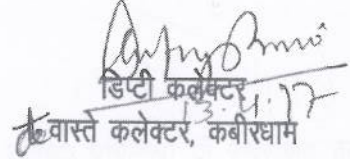 डिप्टी कलेक्टर
13.4.17
वास्ते कलेक्टर, कबीरधाम